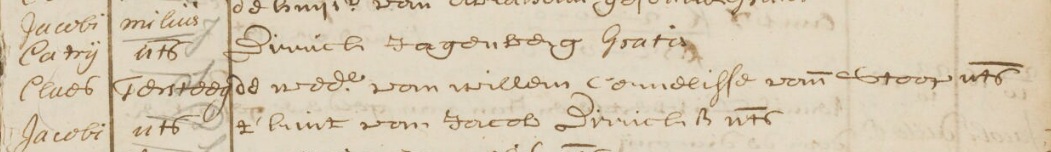 Jacobi miliis
Catrij uts Dirrick Jagenberg Gratis
Claes de wed.e van willem Cornelisse van Stoop uts
Jacobi uts t' kint van Jacob Dirricks uts